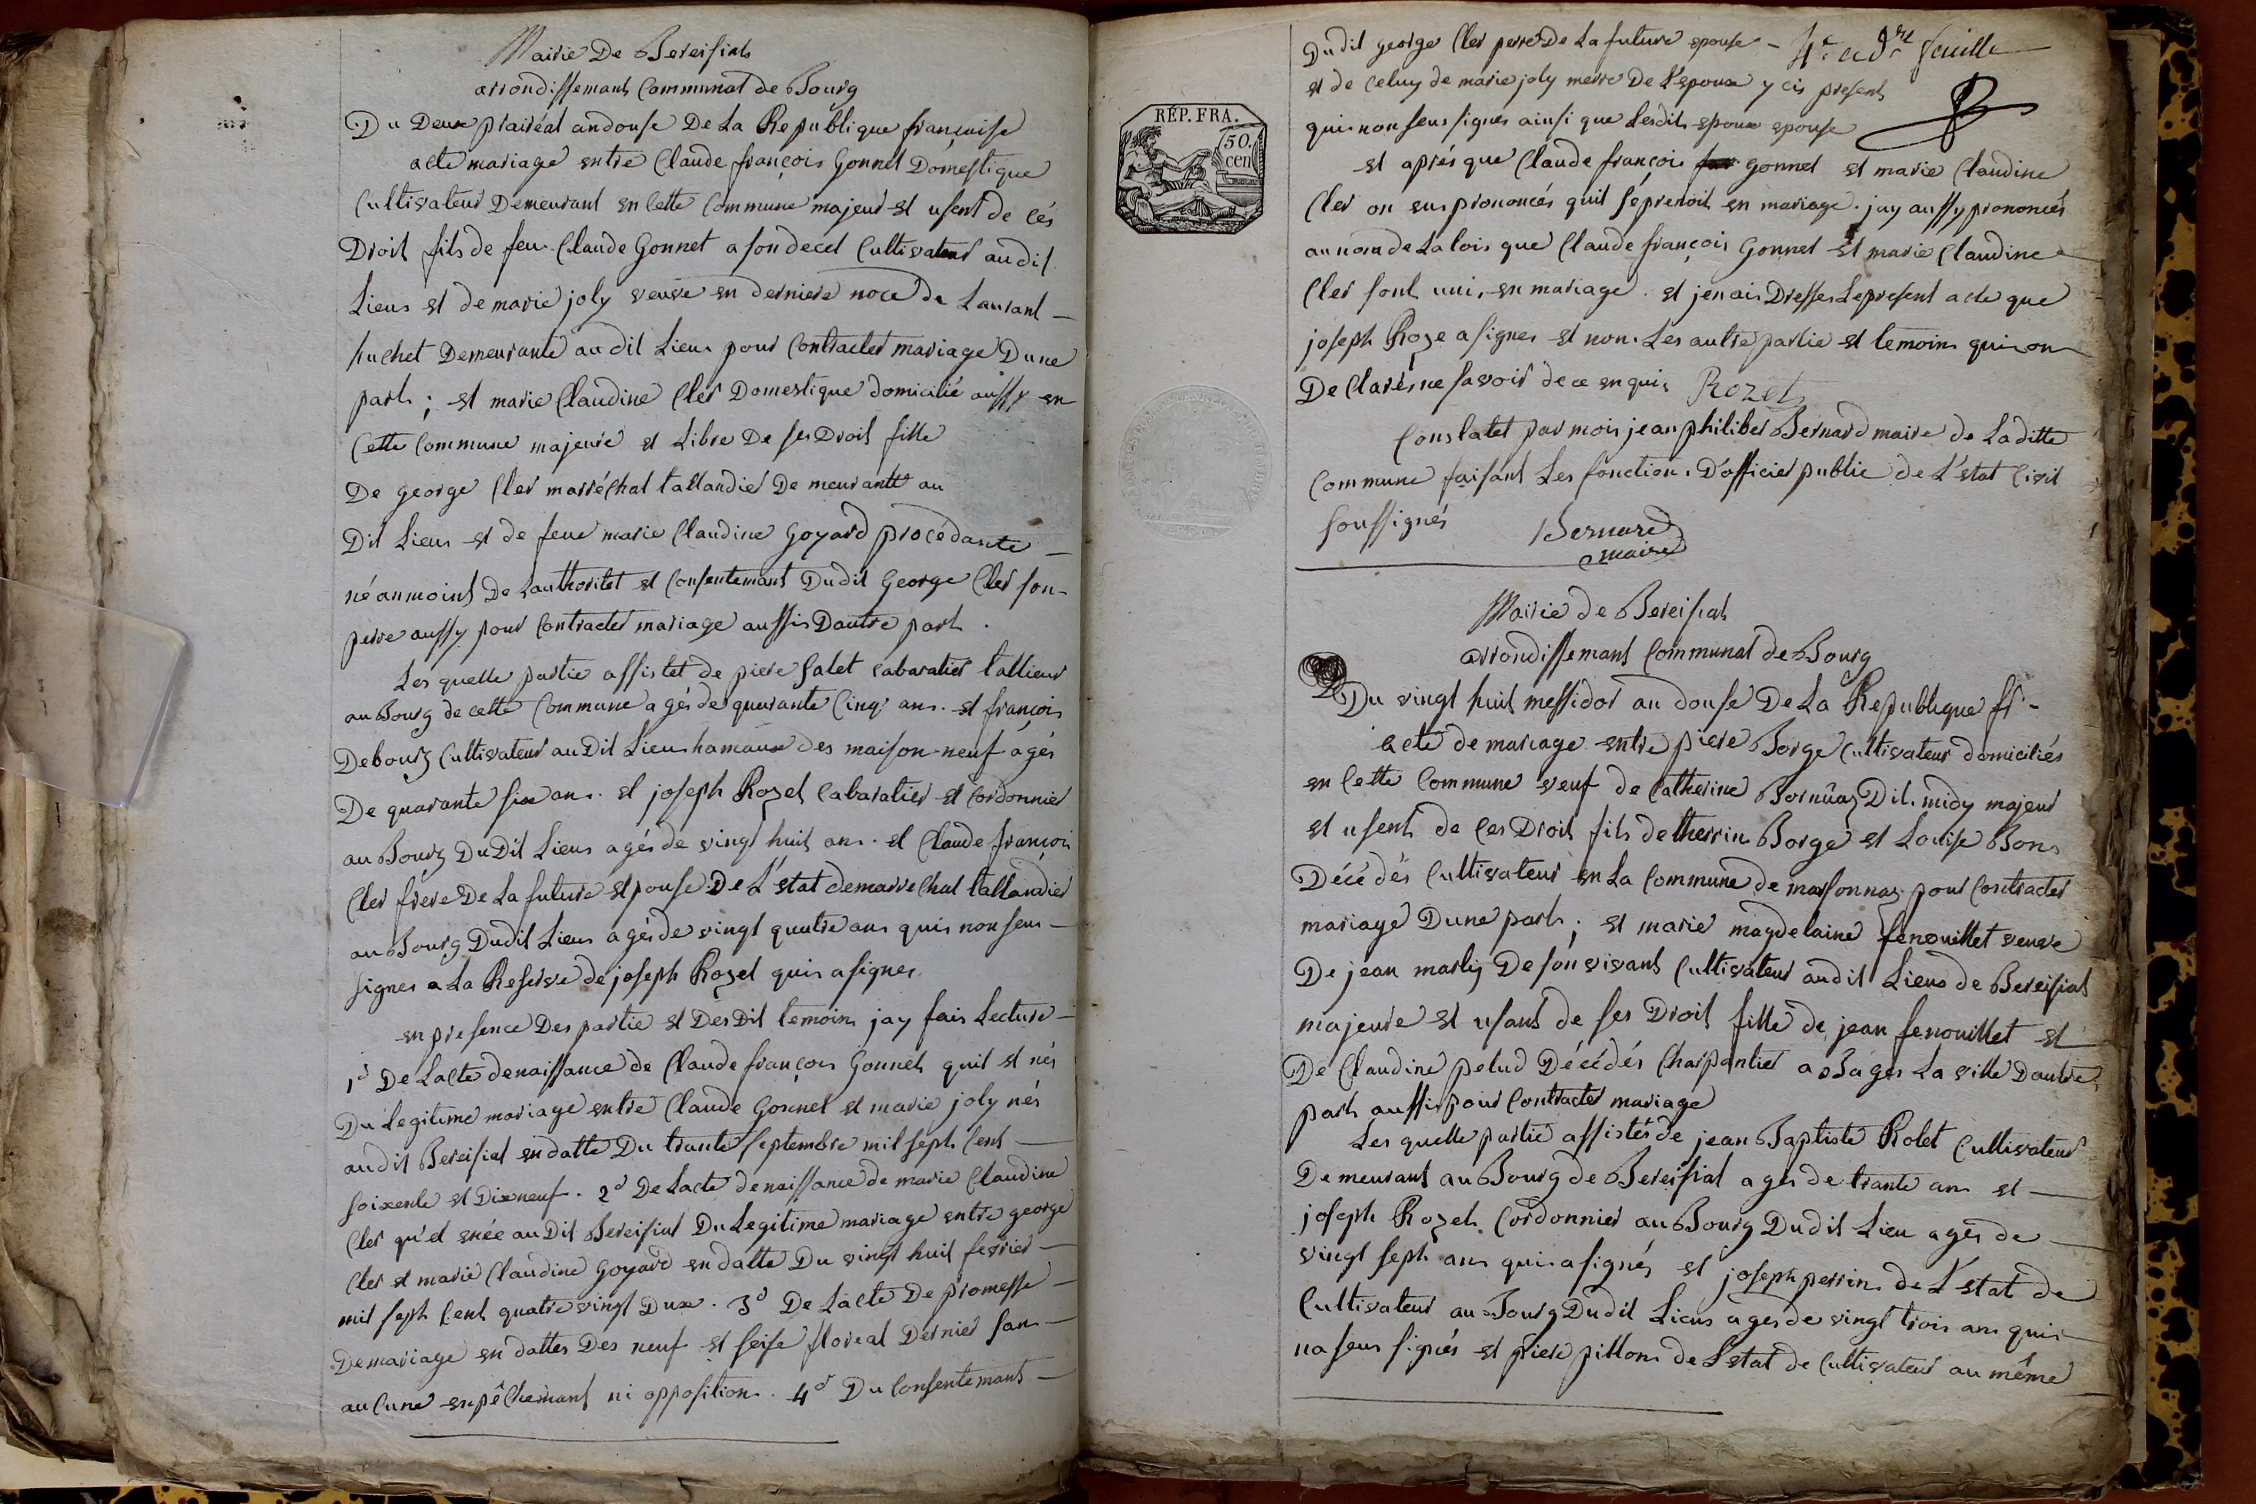 Mairie De Bereisiat
arrondissemant Communal de Bourg
Du Deux prairéal an douse De La Republique françoise
acte mariage entre Claude françois Gonnet Domestique
Cultivateur Demeurant en Cette Commune majeur et usent de cés
Droit fils de feu Claude Gonnet a son decet Cultivateur au dit
Lieus et de marie joly veuve en derniere noce de Laurant
fuchet Demeurante au dit Lieus pour Contracter mariage Dune
part ; et marie Claudine Cler Domestique domicilié aussy en
Cette Commune majeure et Libre De ses Droit fille
De george Cler marréchal tallandier De meurantte au
Dit Lieus et de feue marie Claudine Goyard procédante
né anmoint De Lauthoritet et Consentemant Dudit George Cler son
perre aussy pour Contracter mariage aussis Dautre part .
Les quelle partie assistet de piere Salet Cabaratier tallieur
au Bourg de cette Commune agés de quarante Cinq ans . et françois
Debourg Cultivateur au Dit Lieus hamaux des maison neuf agés
De quarante six ans . et joseph Rozet Cabaratier et Cordonnier
au Bourg Du Dit Lieus agés de vingt huit ans . et Claude françois
Cler frere De La future epouse De L'estat demarrechal tallandier
au Bourg Dudit Lieus agés de vingt quatre ans quis non seus
signer a La Reserve de joseph Rozet quis a signer
en presence Des partie et Des Dit temoins jay fais Lecture
1° De Lacte denaissance de Claude françois Gonnet quil et nés
Du Legitime mariage entre Claude Gonnet et marie joly nés
audit Bereisiat en datte Du trante septembre mil sept Cent
soixente et Dixneuf . 2° De Lacte denaissance de marie Claudine
Cler qu'el et née au Dit Bereisiat Du Legitime mariage entre george
Cler et marie Claudine Goyard en datte Du vingt huit fevrier
mil sept Cent quatre vingt Dux . 3° De Lacte De promesse
De mariage en dattes Des neuf et seise floreal Dernier san
au Cune enpêchemant ni opposition . 4° Du Consentemant
Dudit george Cler perre De La future epouse - 4e et dre feuille
et de Celuy de marie joly merre De L'epoux y cis present
quis non seus signer ainsi que Lesdit epoux epouse
et aprés que Claude françois Gonnet et marie Claudine
Cler on eus prononcés quil sépreroit en mariage . jay aussy prononcés
au nom de La lois que Claude françois Gonnet et marie Claudine
Cler sont unis en mariage . et jen ais Dresser Le present acte que
joseph Roze a signer et non Les autre partie et temoins quis on
De Clarés ne savoir de ce en quis Rozet
Constatet par mois jean philiber Bernard maire de La ditte
Commune faisant Les fonction D'officier public de L'estat Civil
soussignés Bernard
maire
RÉP. FRA.
50.
cen
Mairie de Bereisiat
arrondissemant Communal de Bourg
Du vingt huit messidor an douse De La Republique fr
acte de mariage entre piere Borge Cultivateur domiciliés
en Cette Commune veuf de Catherine Bornüaz Dit midy majeur
et usent de Ces Droit fils detherrin Borge et Louise Bon
Décédés Cultivateur en La Commune de marsonnas pour Contracter
mariage Dune part ; et marie magdelaine fenouillet veuve
De jean marlij De son vivant Cultivateur audit Lieus de Bereisiat
majeure et usant de ses Droit fille de jean fenouillet et
De Claudine pelud Décédés Charpantier a Bages La ville Dautre
part aussis pour Contracter mariage
Les quelle partie assistés de jean Baptiste Rolet Cultivateur
Demeurant au Bourg de Bereisiat agés de trante ans et
joseph Rozet Cordonnier au Bourg Dudit Lieu agés de
vingt sept ans quis a signés et joseph perrin de L'estat de
Cultivateur au Bourg Dudit Lieus agés de vingt trois ans quis
na seus signés et piere pillon de L'estat de Cultivateur au même